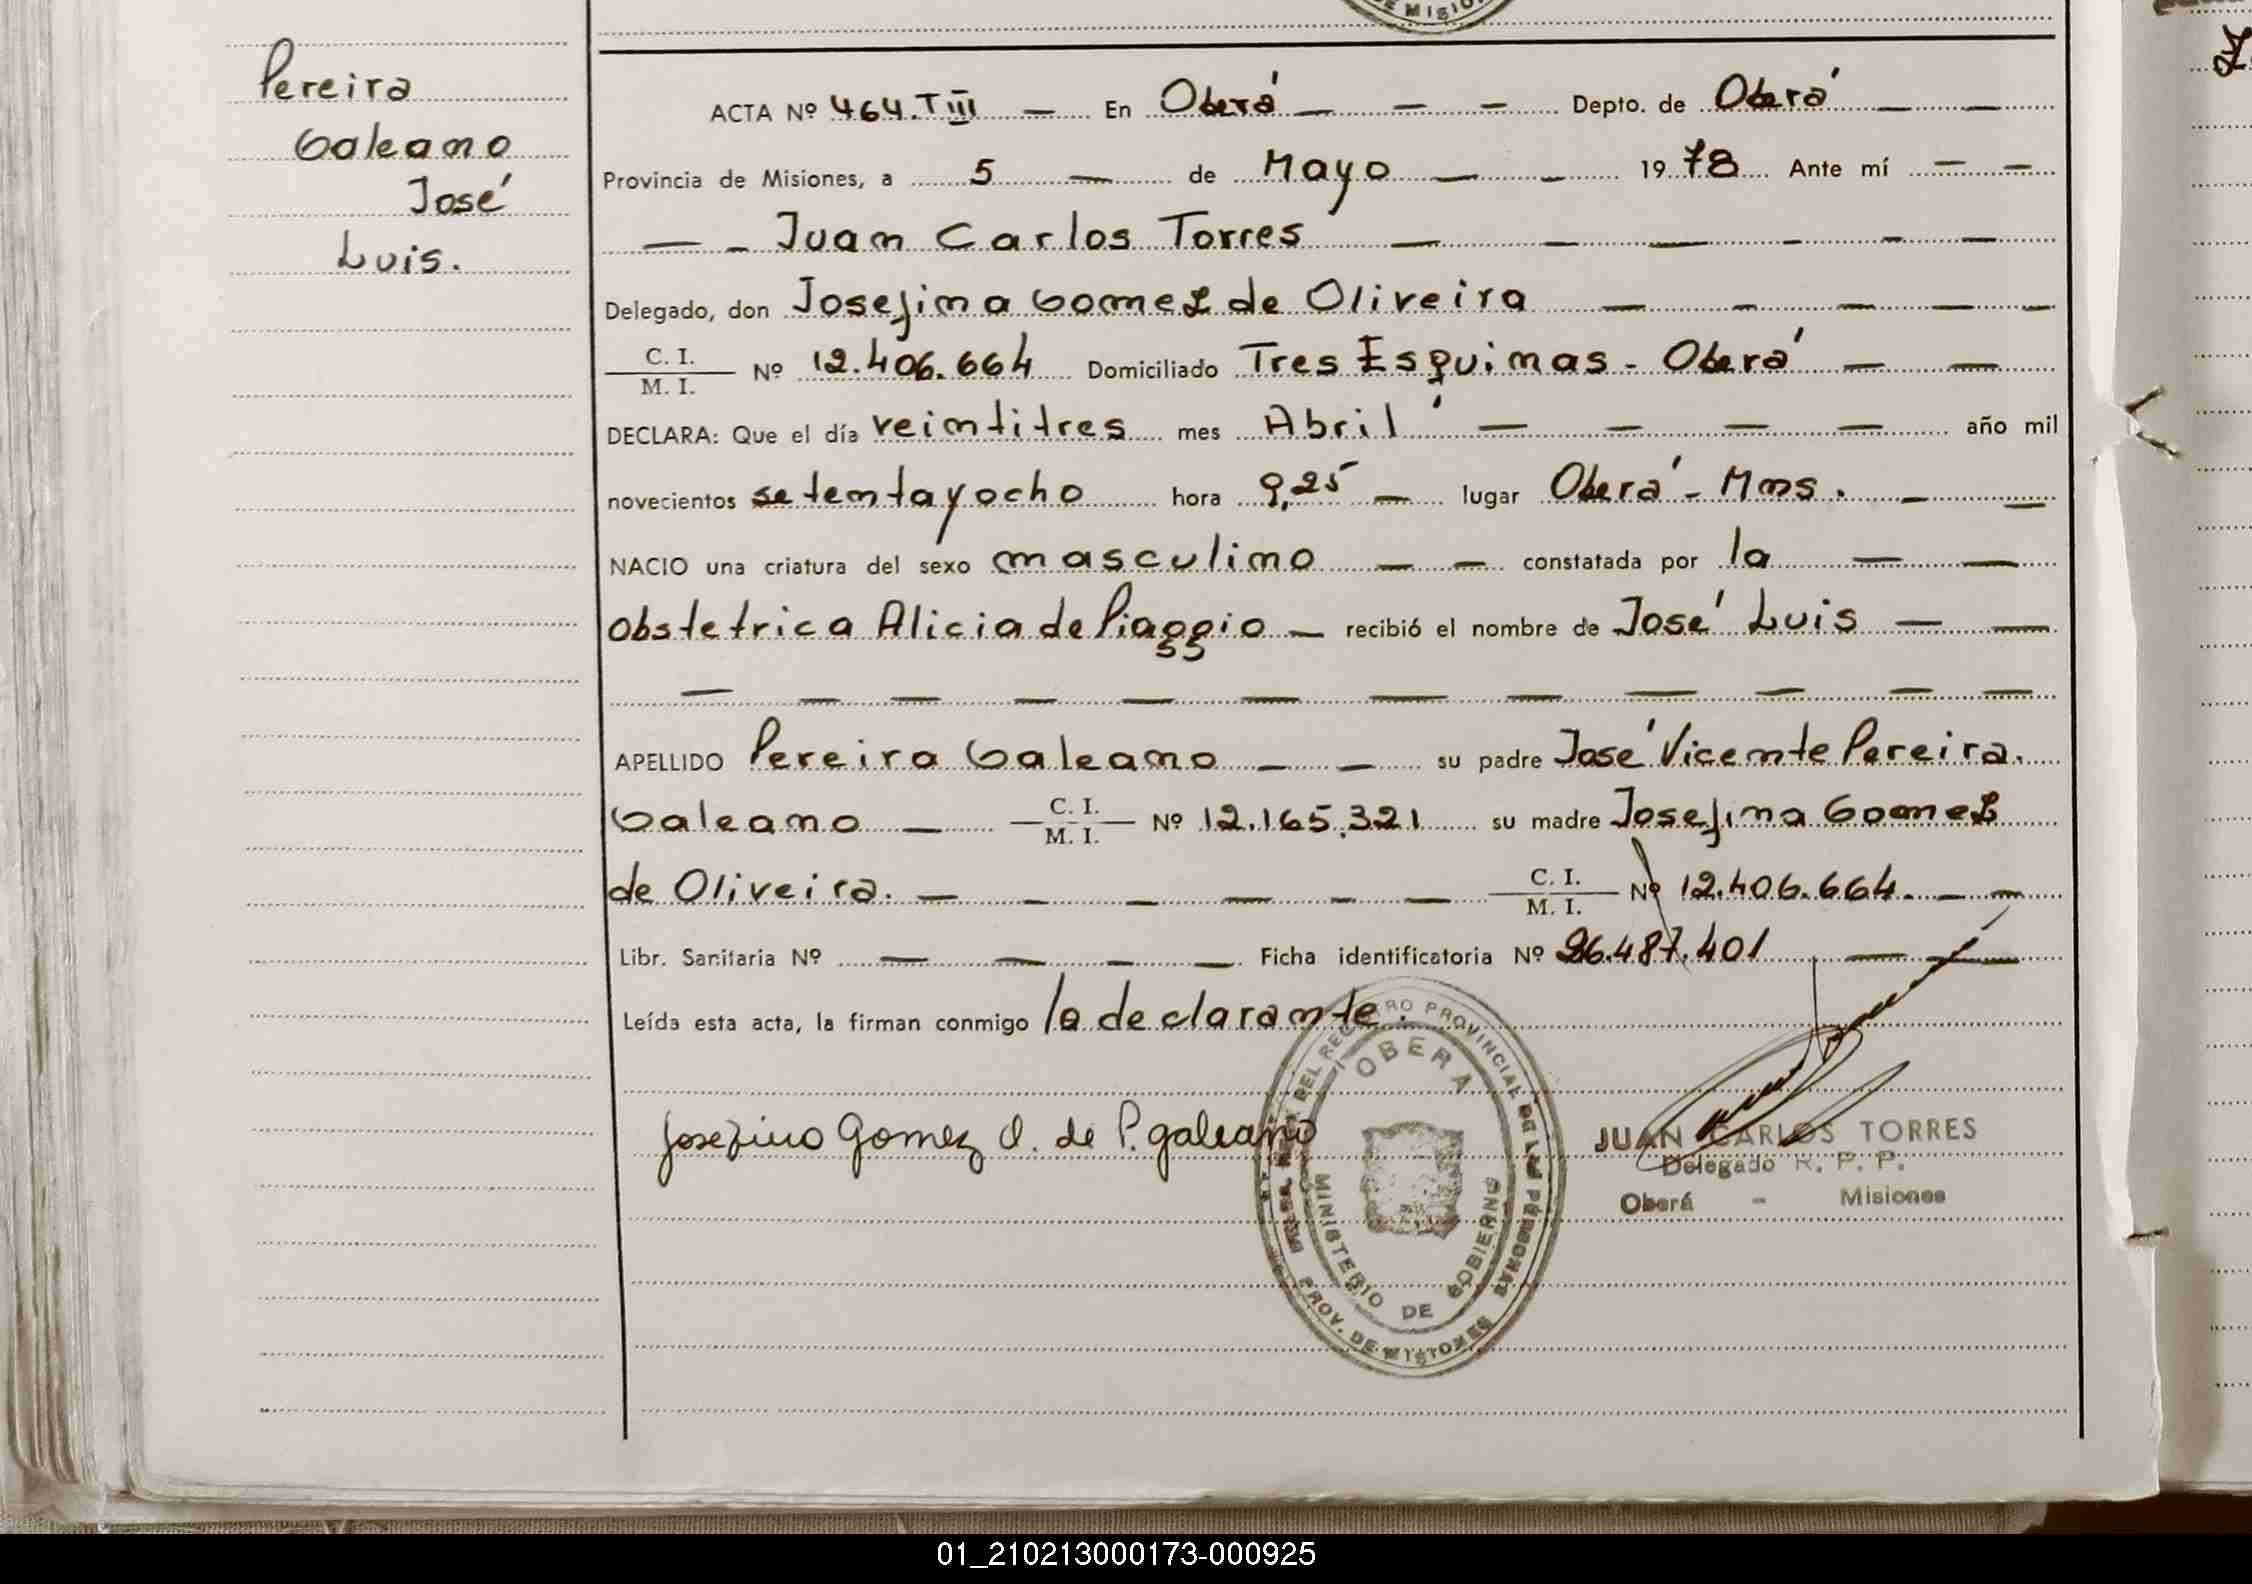 Pereira
Galeano
José
Luis.
ACTA Nº 464.T III — En Oberá — — — Depto. de Oberá — —
Provincia de Misiones, a 5 — de Mayo — — 1978 Ante mí — —
— — Juan Carlos Torres — — — — — —
Delegado, don Josefina Gomez de Oliveira — — — — —
C. I.
M. I. Nº 12.406.664 Domiciliado Tres Esquinas - Oberá — —
DECLARA: Que el día veintitres mes Abril — — — — año mil
novecientos setentayocho hora 9,25 — lugar Oberá - Mnes. — —
NACIO una criatura del sexo masculino — — constatada por la — —
obstetrica Alicia de Piaggio — recibió el nombre de José Luis — —
— — — — — — — — — — — —
APELLIDO Pereira Galeano — — su padre José Vicente Pereira.
Galeano — C. I.
M. I. Nº 12.165.321 su madre Josefina Gomez
de Oliveira. — — — — — — C. I.
M. I. Nº 12.406.664. — —
Libr. Sanitaria Nº — — — — Ficha identificatoria Nº 26.487.401 — —
Leída esta acta, la firman conmigo la declarante.
Josefina Gomez O. de P. galeano
OBERA
MINISTERIO DE GOBIERNO
DEL REGISTRO PROVINCIAL DE LAS PERSONAS
PROV. DE MISIONES
JUAN CARLOS TORRES
Delegado R. P. P.
Oberá - Misiones
01_210213000173-000925